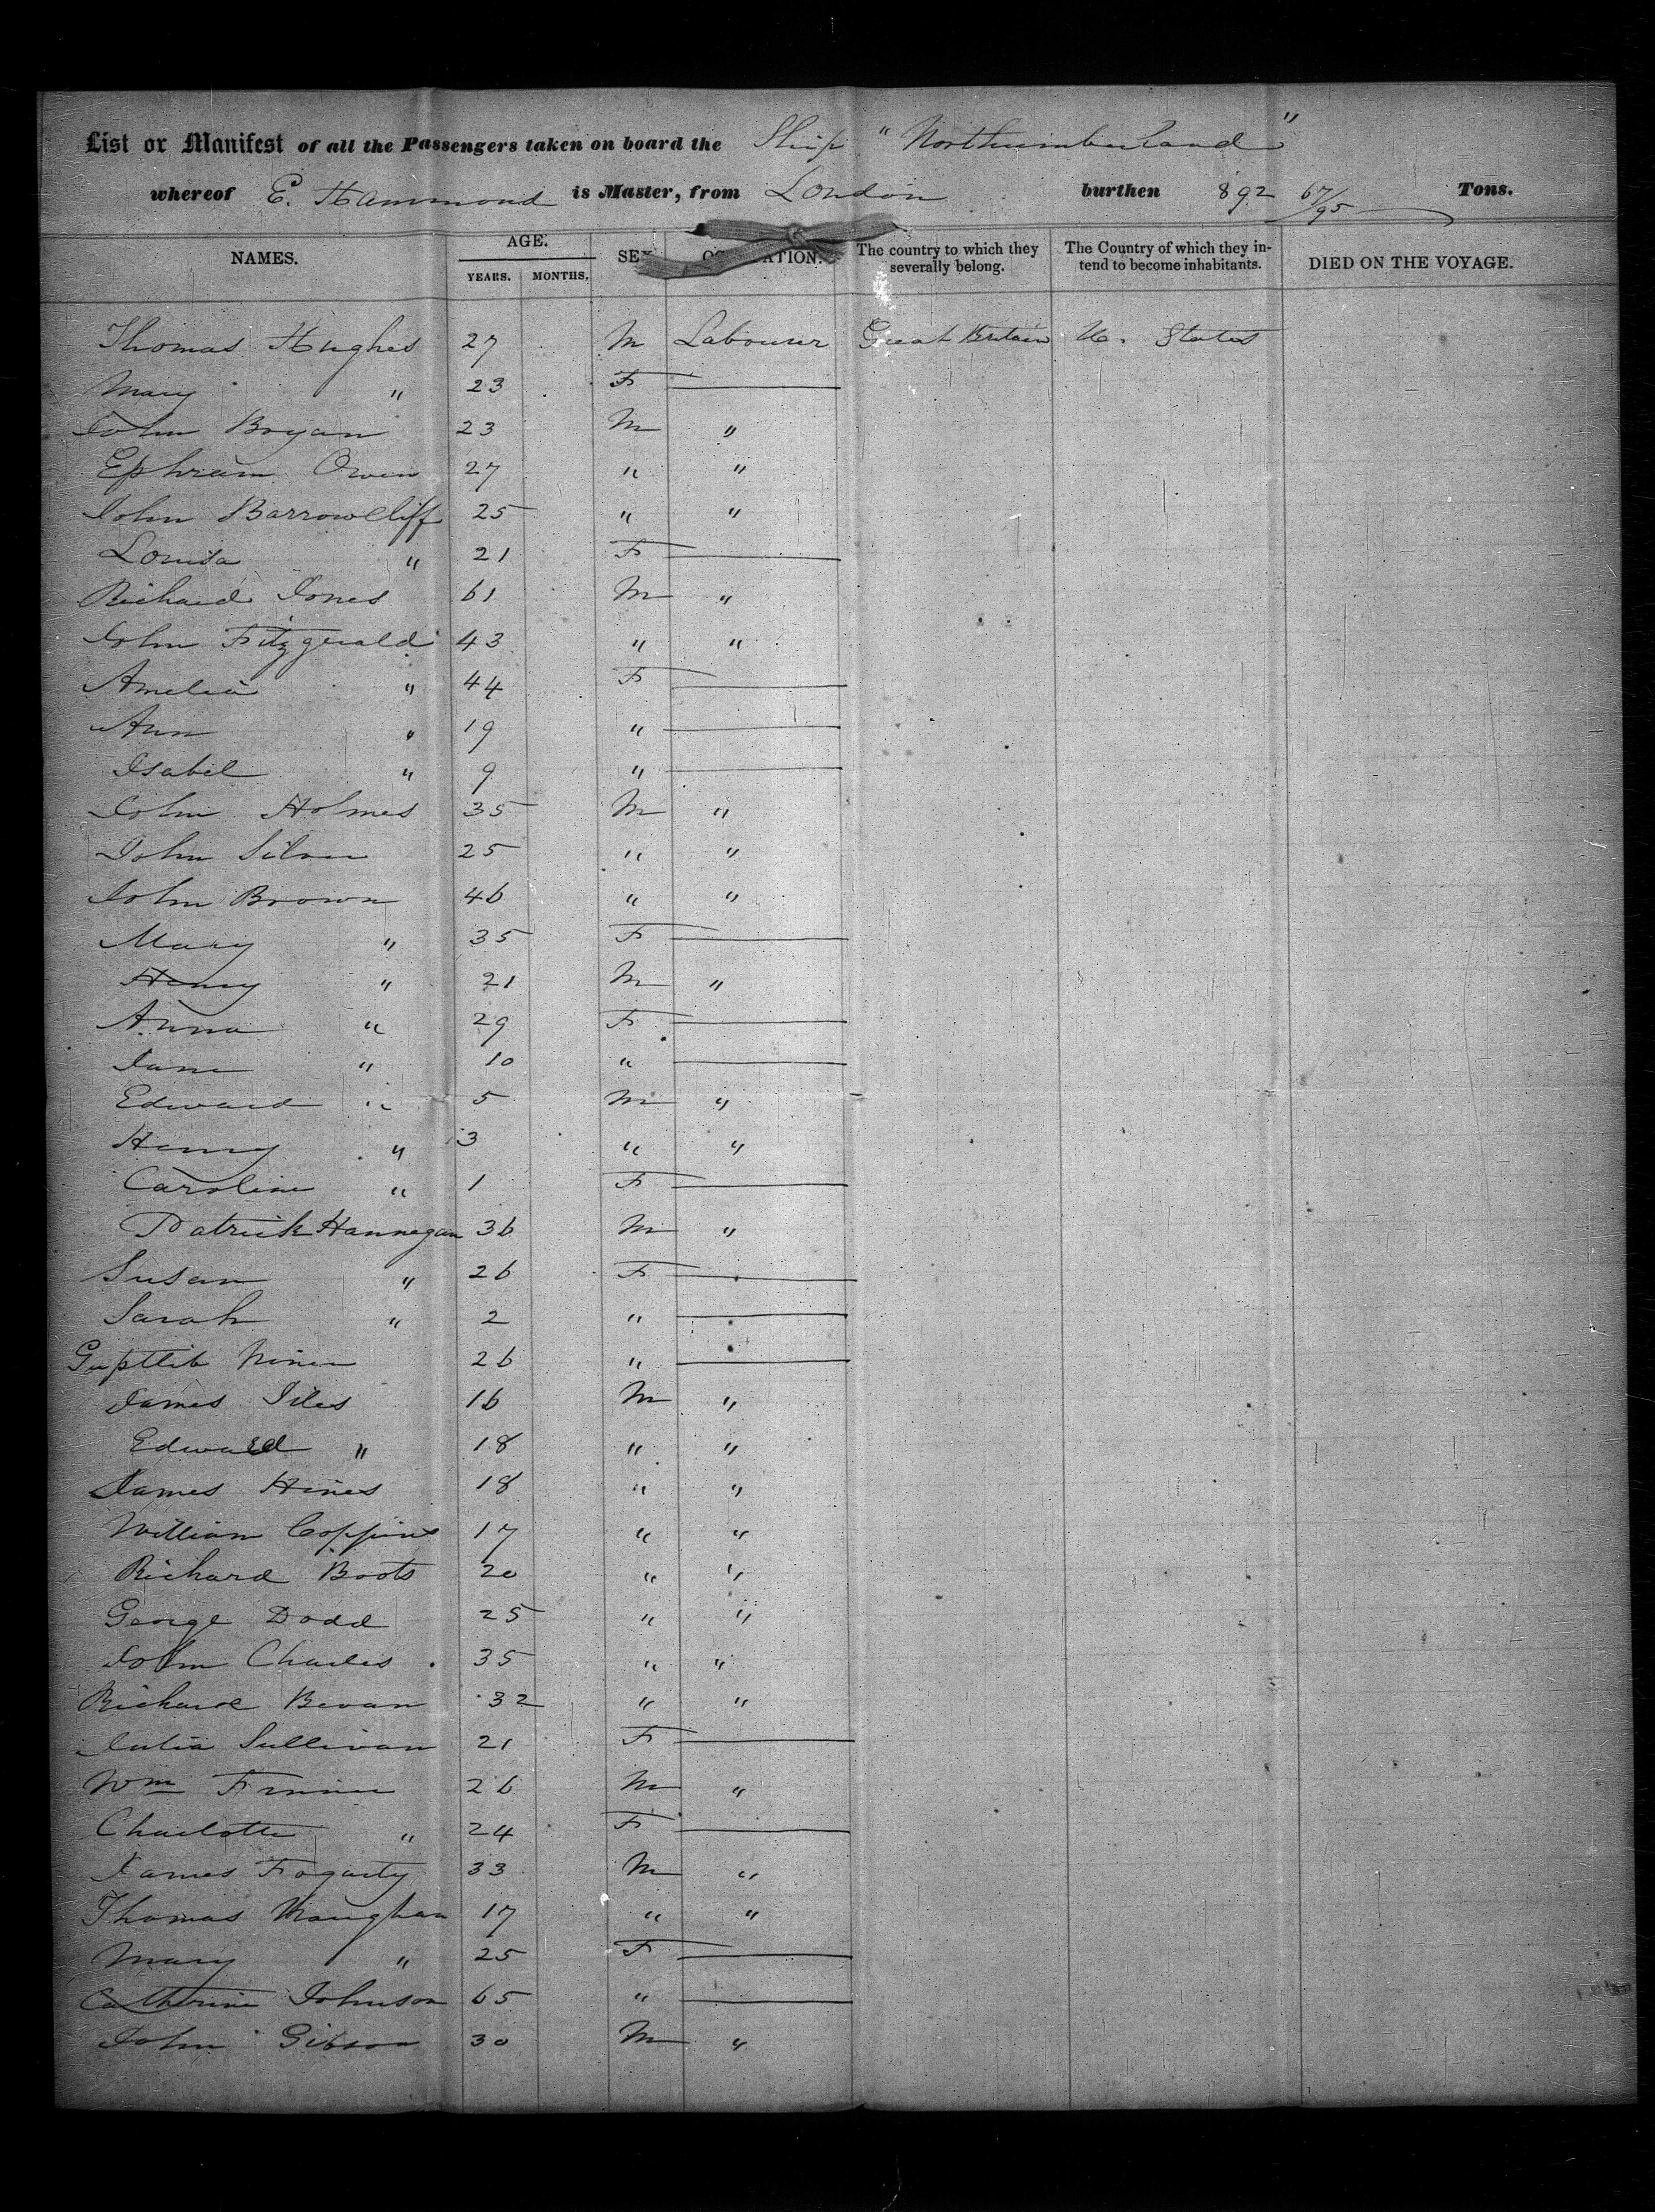 List or Manifest of all the Passengers taken on board the Ship "Northumberland"
whereof E. Hammond is Master, from London burthen 892 67/95 Tons.
NAMES. AGE. YEARS. MONTHS. SEX OCCUPATION. The country to which they severally belong. The Country of which they intend to become inhabitants. DIED ON THE VOYAGE.
Thomas Hughes 27 M Labourer Great Britain U. States
Mary " 23 F
John Bryan 23 M "
Ephram Owen 27 " "
John Barrowcliff 25 " "
Louisa " 21 F
Richard Jones 61 M "
John Fitzgerald 43 " "
Amelia " 44 F
Ann " 19 "
Isabel " 9 "
John Holmes 35 M "
John Silver 25 " "
John Brown 46 " "
Mary " 35 F
Henry " 21 M "
Anna " 29 F
Jane " 10 "
Edward " 5 M "
Henry " 3 " "
Caroline " 1 F
Patrick Hannegan 36 M "
Susan " 26 F
Sarah " 2 "
26 "
James Iles 16 M "
Edward " 18 " "
James Hines 18 " "
William Coppins 17 " "
Richard Boots 20 " "
George Dodd 25 " "
John Charles 35 " "
Richard Bevan 32 " "
Julia Sullivan 21 F
Wm 26 M "
Charlotte " 24 F
James Fogarty 33 M "
Thomas Maughan 17 " "
Mary " 25 F
Catherine Johnson 65 "
John Gibson 30 M "